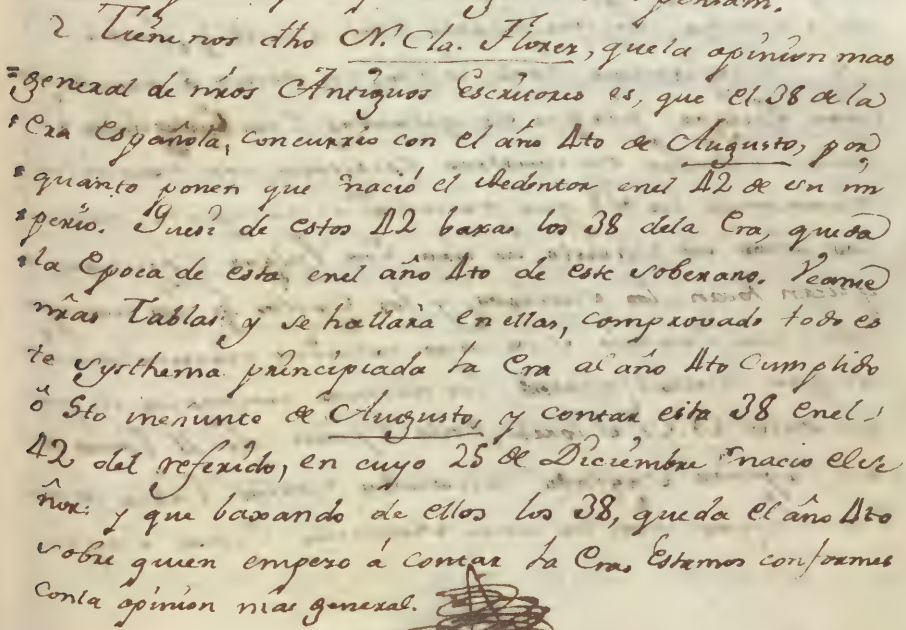 2 Tiene nos dho N. Cla. Florez, que la opinion mas
general de nr̃os Antiguos Escritores es, que el 38 de la
Era Española, concurrio con el año 4to de Augusto, por
quanto ponen que nació el Redentor en el 42 de su im
perio. Pues de estos 42 baxas los 38 dela Era, queda
la Epoca de esta en el año 4to de este soberano. Veanse
nr̃as Tablas y se hallara en ellas, comprovado todo es
te systhema principiada la Era al año 4to Cumplido
ô 5to ineñunte de Augusto, y contar esta 38 en el
42 del referido, en cuyo 25 de Diciembre nacio el Se
ñor: y que baxando de ellos los 38, queda el año 4to
sobre quien empezo á contar la Era. Estamos conformes
con la opinion mas general.